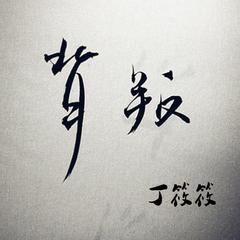 背叛
丁筱筱